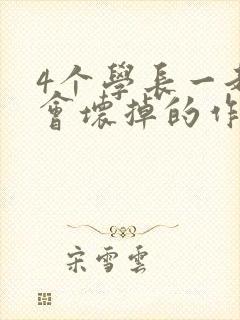 4个學長一
會壞掉的作
宋雪雲